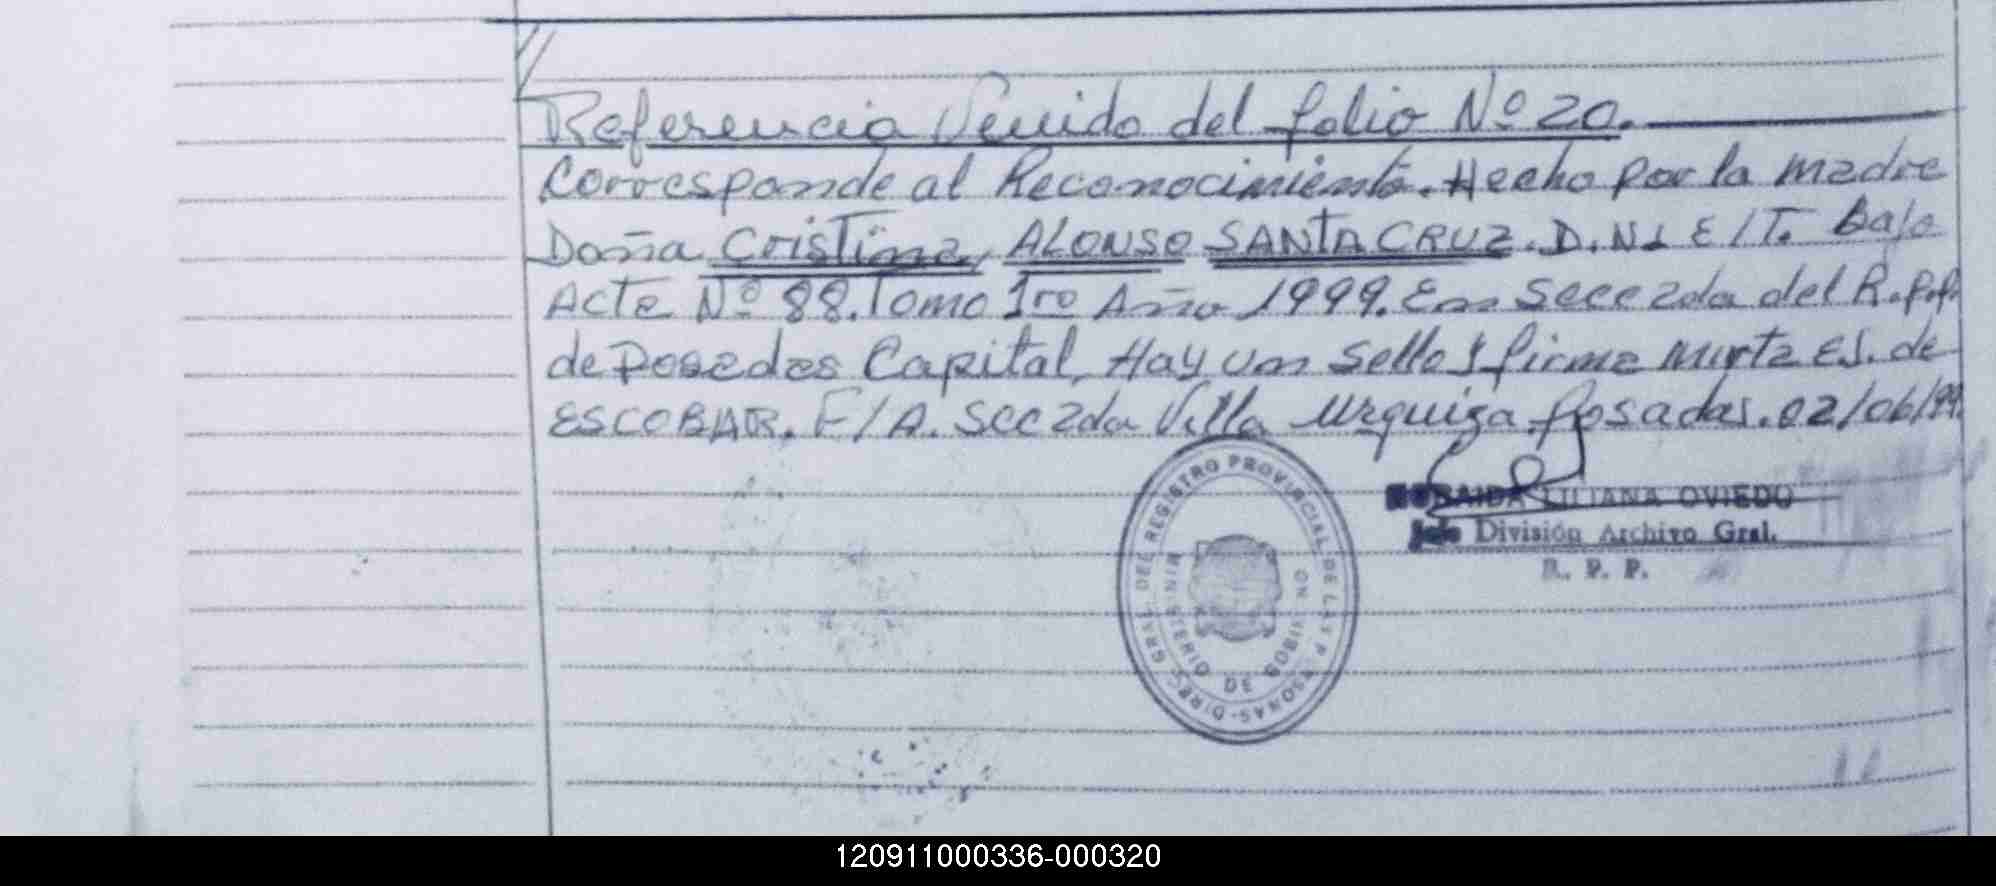 Referencia Venido del folio Nº 20.
Corresponde al Reconocimiento. Hecho por la madre
Doña Cristina, ALONSO SANTA CRUZ. D.N.I E/T. Bajo
Acta Nº 88. Tomo 1ro Año 1999. En Secc 2da del R.P.P.
de Posadas Capital, Hay un sello y firma Mirta E. de
ESCOBAR. F/A. Secc 2da Villa Urquiza Posadas. 02/06/99.
LILIANA OVIEDO
Jefe División Archivo Gral.
R. P. P.
DIREC. GRAL. DEL REGISTRO PROVINCIAL DE LAS P SONAS
MINISTERIO DE GOBIERNO
120911000336-000320